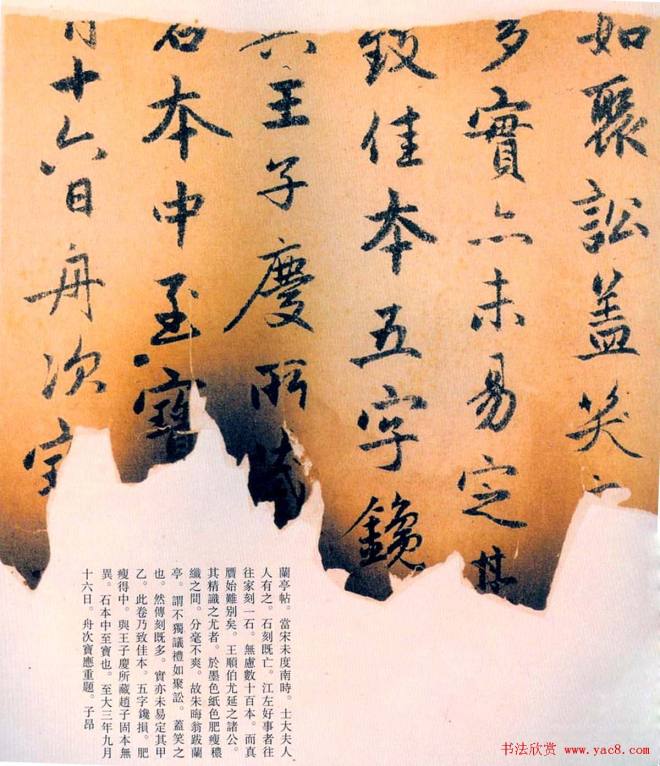 如聚訟蓋笑
多實亦未易定其
致佳本五字鑱
與王子慶所藏
石本中至寶
月十六日舟次寶
蘭亭帖。當宋未度南時。士大夫人
人有之。石刻既亡。江左好事者往
往家刻一石。無慮數十百本。而真
贋始難別矣。王順伯尤延之諸公。
其精識之尤者。於墨色紙色肥瘦穠
纖之間。分毫不爽。故朱晦翁跋蘭
亭。謂不獨議禮如聚訟。蓋笑之
也。然傳刻既多。實亦未易定其甲
乙。此卷乃致佳本。五字鑱損。肥
瘦得中。與王子慶所藏趙子固本無
異。石本中至寶也。至大三年九月
十六日。舟次寶應重題。子昂
书法欣赏
http://www.yac8.com